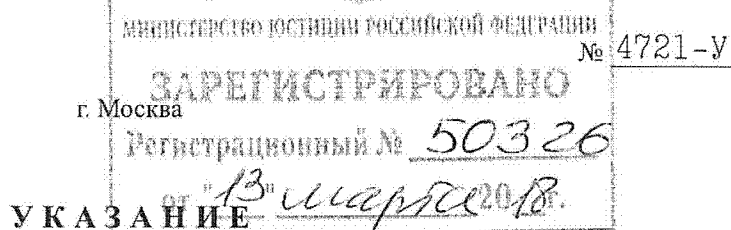 МИНИСТЕРСТВО ЮСТИЦИИ РОССИЙСКОЙ ФЕДЕРАЦИИ
№ 4721-У
ЗАРЕГИСТРИРОВАНО
г. Москва
Регистрационный № 50326
от "13" марта 2018г.
УКАЗАНИЕ